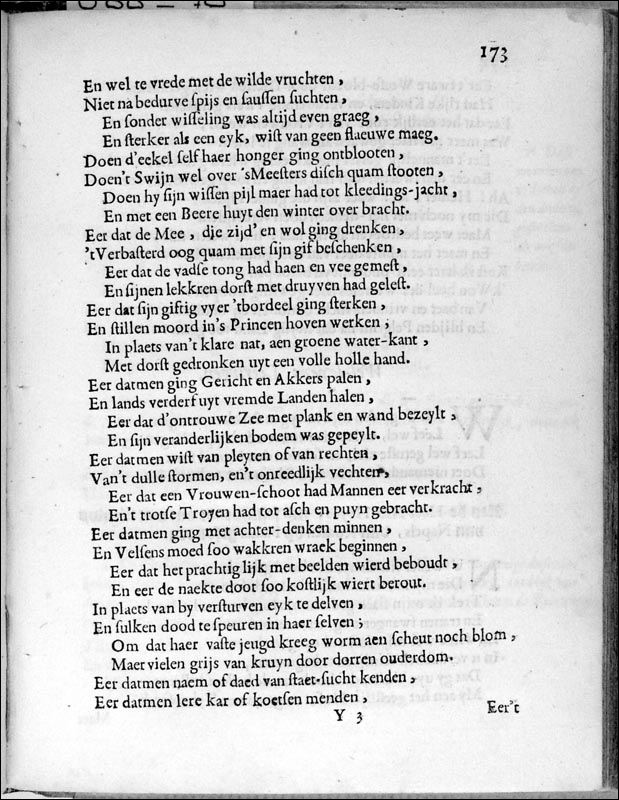 173
En wel te vrede met de wilde vruchten ,
Niet na bedurve ſpijs en ſauſſen ſuchten ,
En ſonder wiſſeling was altijd even graeg ,
En ſterker als een eyk, wiſt van geen ſlaeuwe maeg.
Doen d'eekel ſelf haer honger ging ontblooten ,
Doen't Swijn wel over 'sMeeſters diſch quam ſtooten ,
Doen hy ſijn wiſſen pijl maer had tot kleedings-jacht ,
En met een Beere huyt den winter over bracht.
Eer dat de Mee , die zijd' en wol ging drenken ,
'tVerbaſterd oog quam met ſijn gif beſchenken ,
Eer dat de vadſe tong had haen en vee gemeſt ,
En ſijnen lekkren dorſt met druyven had geleſt.
Eer dat ſijn giftig vyer 'tbordeel ging ſterken ,
En ſtillen moord in's Princen hoven werken ;
In plaets van't klare nat, aen groene water-kant ,
Met dorſt gedronken uyt een volle holle hand.
Eer datmen ging Gericht en Akkers palen ,
En lands verderf uyt vremde Landen halen ,
Eer dat d'ontrouwe Zee met plank en wand bezeylt ,
En ſijn veranderlijken bodem was gepeylt.
Eer datmen wiſt van pleyten of van rechten ,
Van't dulle ſtormen, en't onreedlijk vechten ,
Eer dat een Vrouwen-ſchoot had Mannen eer verkracht ,
En't trotſe Troyen had tot aſch en puyn gebracht.
Eer datmen ging met achter-denken minnen ,
En Velſens moed ſoo wakkren wraek beginnen ,
Eer dat het prachtig lijk met beelden wierd beboudt ,
En eer de naekte doot ſoo koſtlijk wiert berout.
In plaets van by verſturven eyk te delven ,
En ſulken dood te ſpeuren in haer ſelven ;
Om dat haer vaſte jeugd kreeg worm aen ſcheut noch blom ,
Maer vielen grijs van kruyn door dorren ouderdom.
Eer datmen naem of daed van ſtaet-ſucht kenden ,
Eer datmen lere kar of koetſen menden ,
Y 3
Eer't